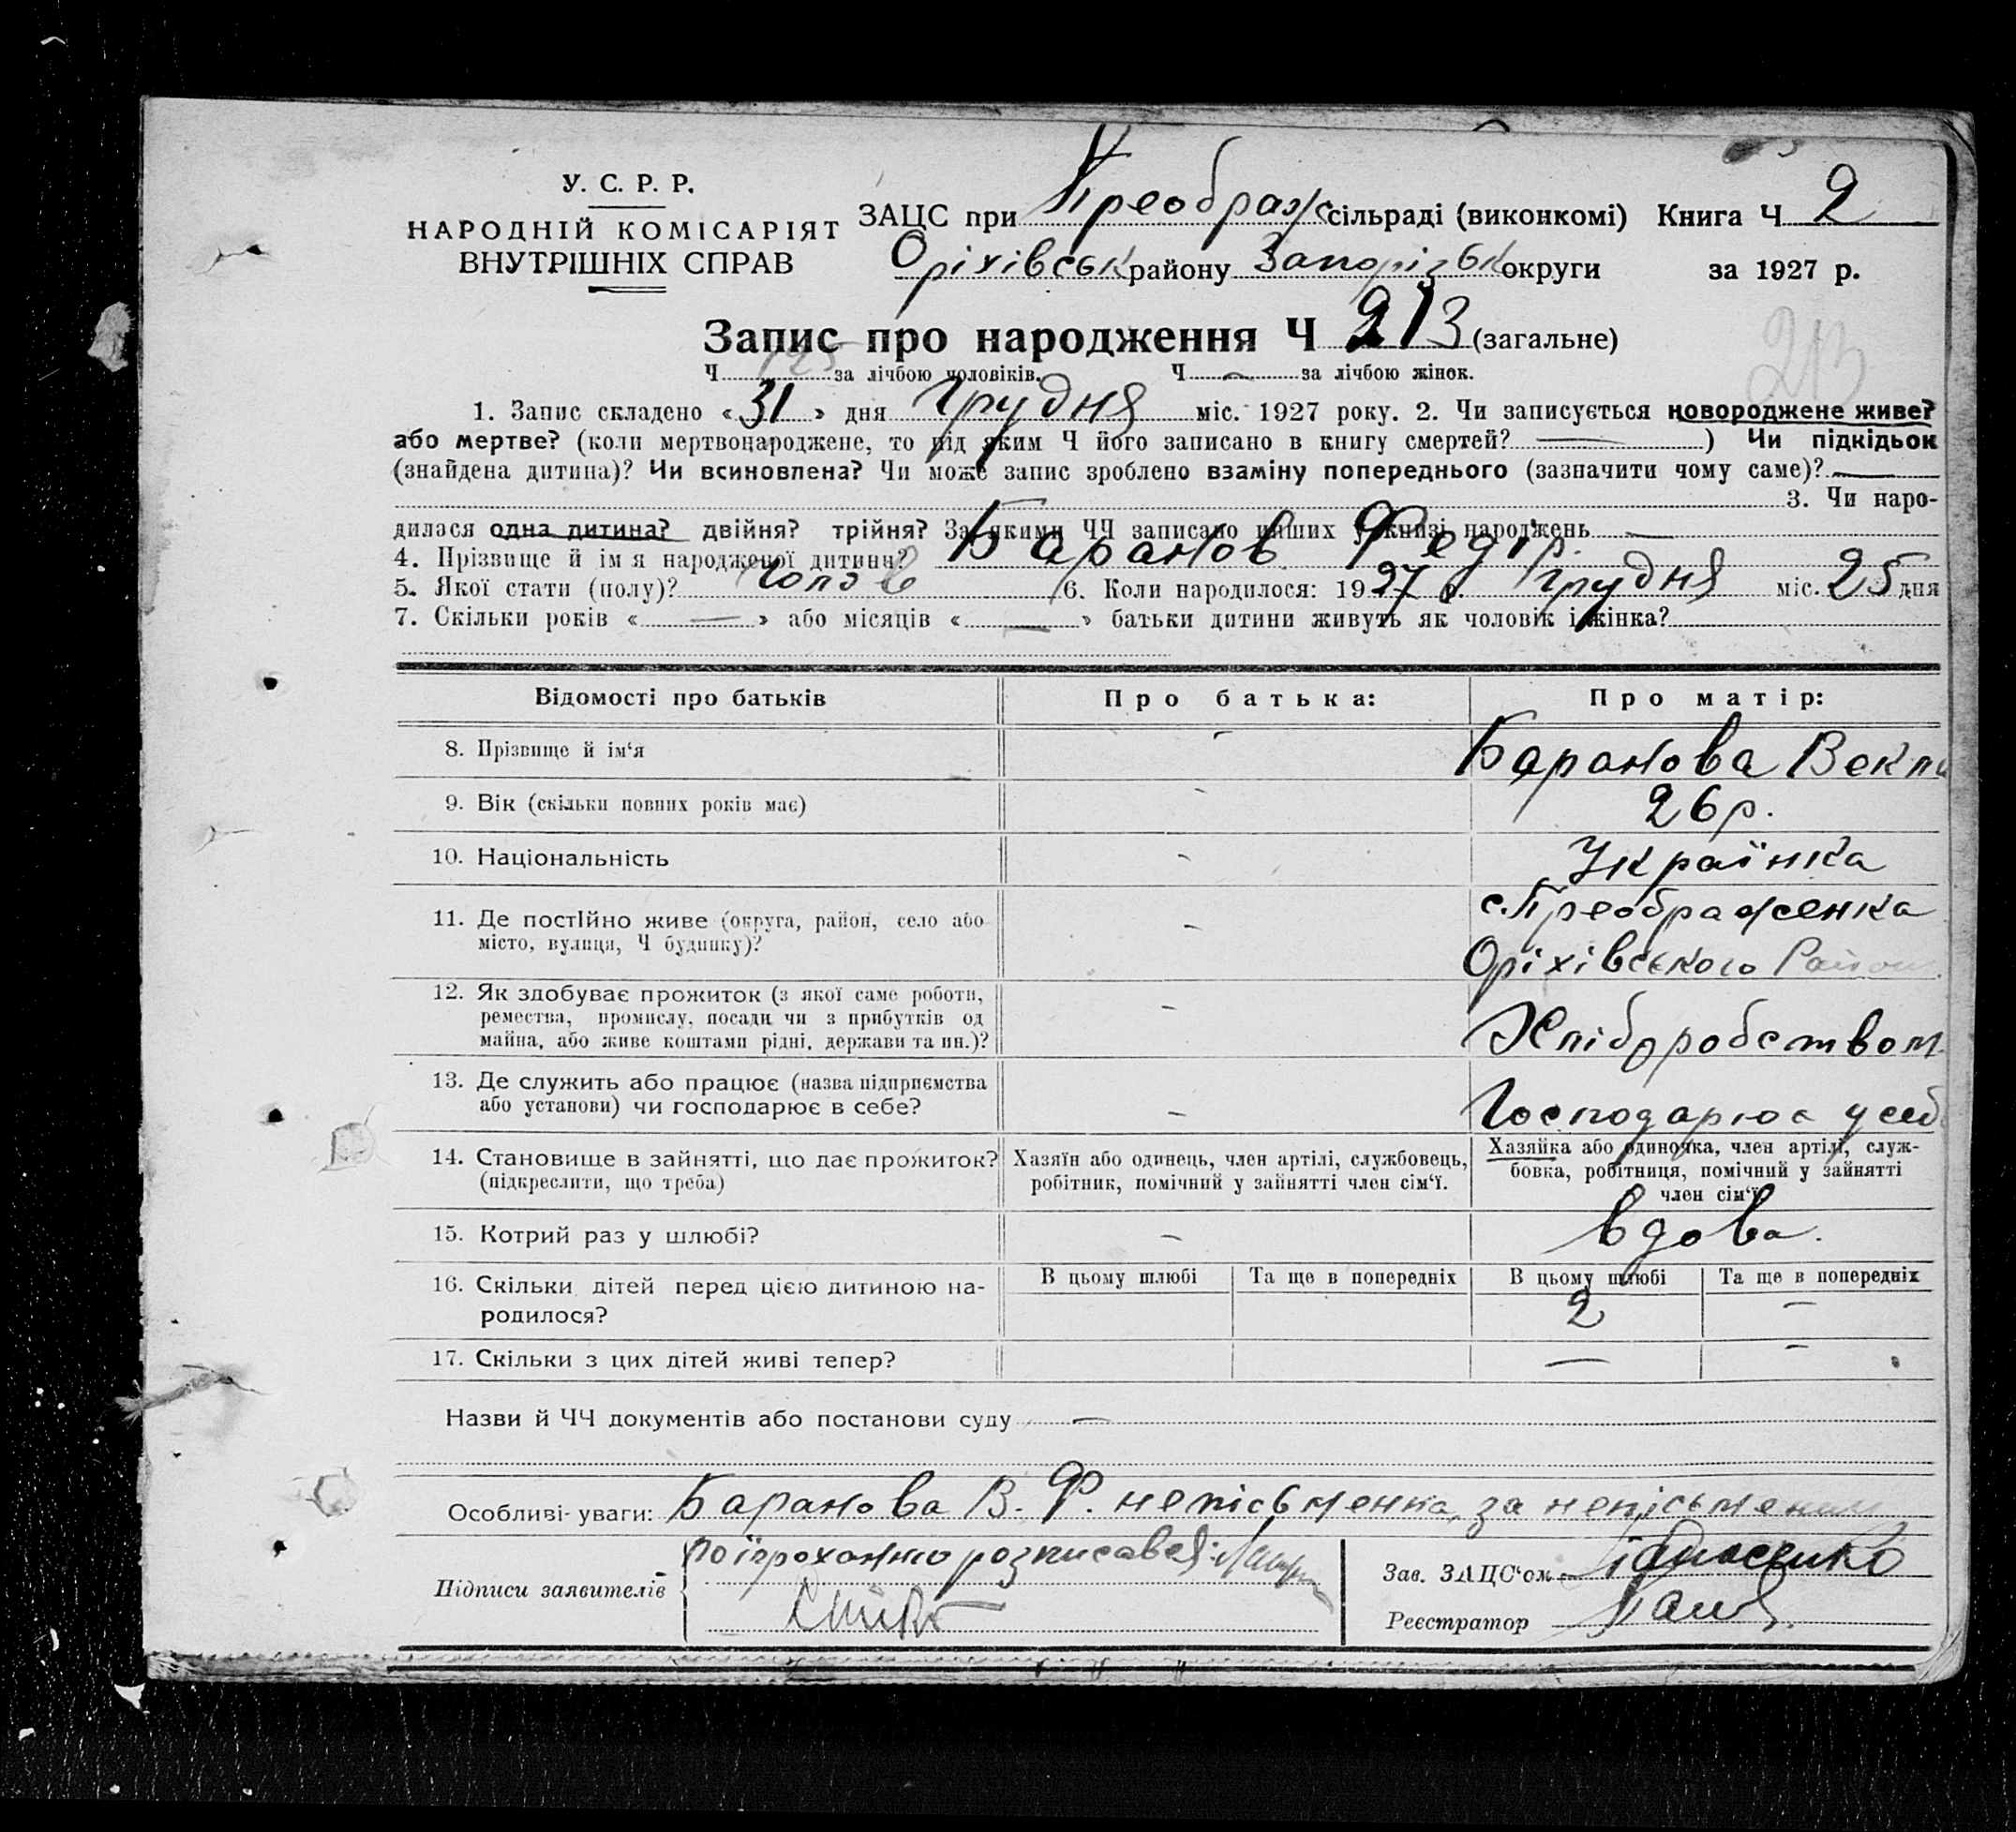 У. С. Р. Р.
НАРОДНІЙ КОМІСАРІЯТ
ВНУТРІШНІХ СПРАВ
ЗАЦС при Преображс сільраді (виконкомі) Книга Ч 2
Оріхівськ району Запорізьк округи за 1927 р.
Запис про народження Ч 213 (загальне)
213
Ч 125 за лічбою чоловіків. Ч — за лічбою жінок.
1. Запис складено « 31 » дня грудня міс. 1927 року. 2. Чи записується новороджене живе?
або мертве? (коли мертвонароджене, то під яким Ч його записано в книгу смертей? — ) Чи підкідьок
(знайдена дитина)? Чи всиновлена? Чи може запис зроблено взаміну попереднього (зазначити чому саме)? —
3. Чи наро-
дилася одна дитина? двійня? трійня? За якими ЧЧ записано інших у книзі народжень —
4. Прізвище й ім я народженої дитини? Баранов Федір.
5. Якої стати (полу)? Чолов 6. Коли народилося: 1927 р. грудня міс. 25 дня
7. Скільки років « — » або місяців « — » батьки дитини живуть як чоловік і жінка?
Відомості про батьків Про батька: Про матір:
8. Прізвище й ім‘я - Баранова Векли
9. Вік (скільки повних років має) - 26 р.
10. Національність - Українка
11. Де постійно живе (округа, район, село або - с. Преображенка
місто, вулиця, Ч будинку)? Оріхівського Району
12. Як здобуває прожиток (з якої саме роботи,
ремества, промислу, посади чи з прибутків од - Хліборобством
майна, або живе коштами рідні, держави та ин.)?
13. Де служить або працює (назва підприємства
або установи) чи господарює в себе? - Господарює у себ
14. Становище в зайнятті, що дає прожиток? Хазяїн або одинець, член артілі, службовець, Хазяйка або одиночка, член артілі, служ-
(підкреслити, що треба) робітник, помічний у зайнятті член сім‘ї. бовка, робітниця, помічний у зайнятті
член сім‘ї
15. Котрий раз у шлюбі? - вдова.
16. Скільки дітей перед цією дитиною на- В цьому шлюбі Та ще в попередніх В цьому шлюбі Та ще в попередніх
родилося? 2 —
17. Скільки з цих дітей живі тепер? — -
Назви й ЧЧ документів або постанови суду —
Особливі уваги: Баранова В. Ф. неписьменна, за неписьмен
Підписи заявителів по її проханню розписався:
Зав. ЗАЦС‘ом
Реєстратор